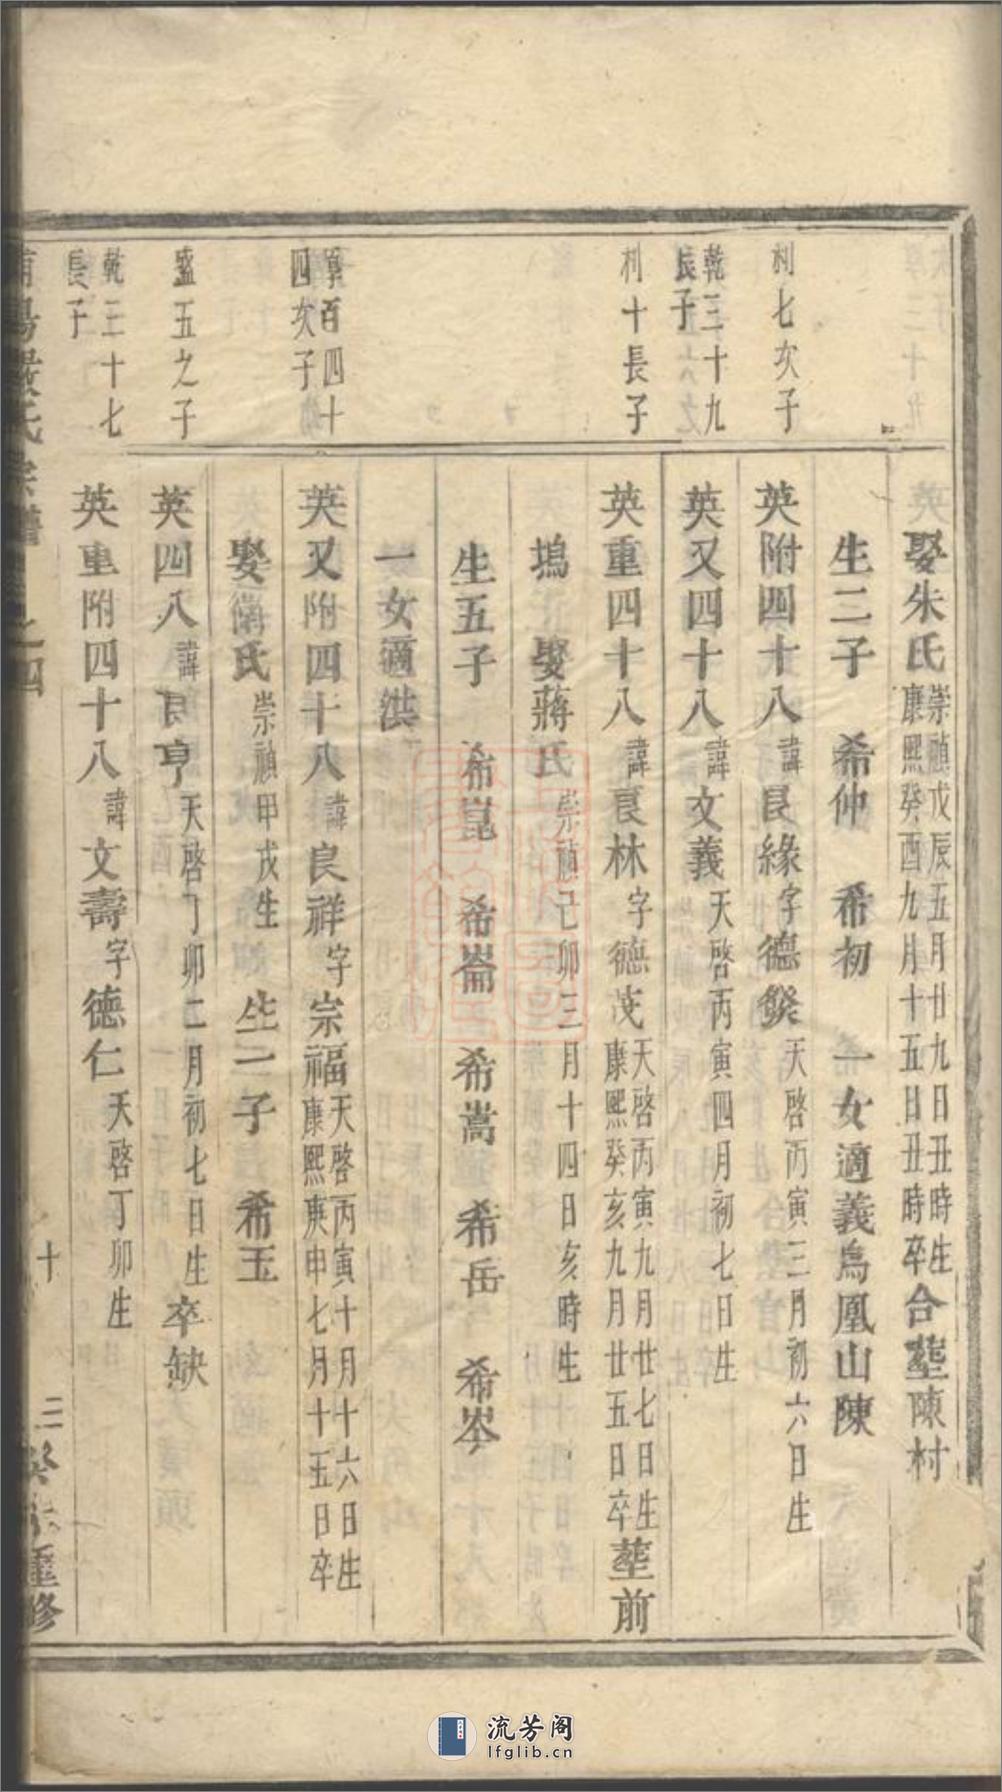 娶朱氏崇禎戊辰五月廿九日丑時生康熙癸酉九月十五日丑時卒合塟陳村
生二子 希仲 希初 一女適義烏凰山陳
利七次子
英附四十八諱良緣字德發天啓丙寅三月初六日生
乾三十九長子
英又四十八諱文義天啓丙寅四月初七日生
利十長子
英重四十八諱良林字德茂天啓丙寅九月廿七日生康熙癸亥九月廿五日卒塟前
塢 娶蔣氏崇禎己卯三月十四日亥時生
生五子 希崑 希崙 希嵩 希岳 希岑
一女適洪
百四十四次子
英又附四十八諱良祥字宗福天啓丙寅十月十六日生康熙庚申七月十五日卒
娶衛氏崇禎甲戌生 生一子 希玉
盛五之子
英四八諱良亨天啓丁卯二月初七日生卒缺
乾三十七長子
英重附四十八諱文壽字德仁天啓丁卯生
氏宗譜 之四 十 三 重修
流芳阁
lfglib.cn